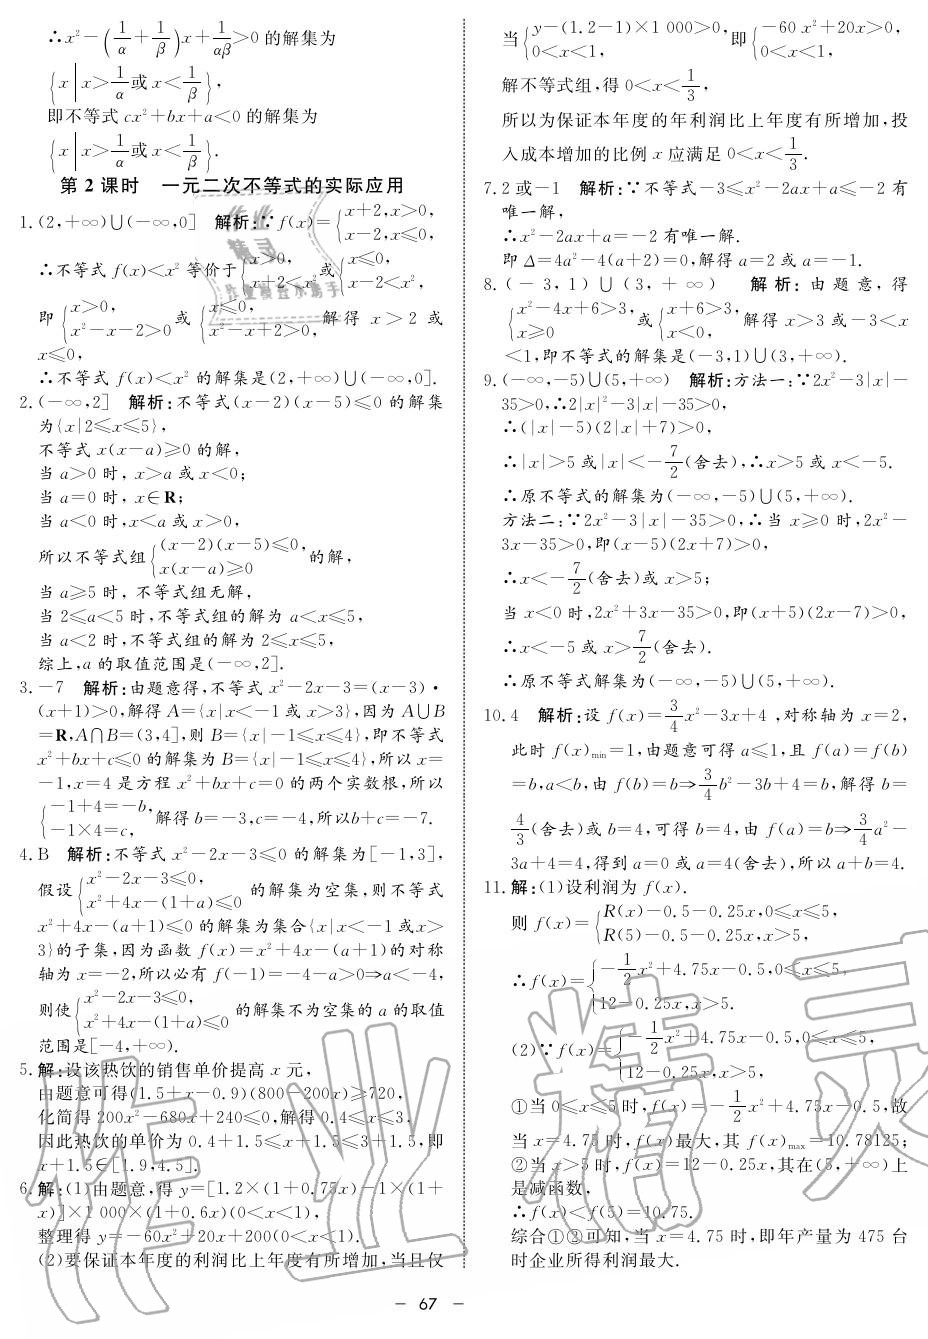 ∴x²－(1/α＋1/β)x＋1/αβ>0 的解集为
{x|x>1/α或x<1/β},
即不等式 cx²＋bx＋a<0 的解集为
{x|x>1/α或x<1/β}.
第 2 课时　一元二次不等式的实际应用
1. (2,＋∞)∪(－∞,0]　解析:∵f(x)＝{x＋2,x>0, x－2,x≤0,
∴不等式 f(x)<x² 等价于{x>0, x＋2<x²或{x≤0, x－2<x²,
即{x>0, x²－x－2>0或{x≤0, x²－x＋2>0,解得 x>2 或
x≤0,
∴不等式 f(x)<x² 的解集是(2,＋∞)∪(－∞,0].
2. (－∞,2]　解析:不等式(x－2)(x－5)≤0 的解集
为{x|2≤x≤5},
不等式 x(x－a)≥0 的解,
当 a>0 时, x>a 或 x<0;
当 a＝0 时, x∈R;
当 a<0 时,x<a 或 x>0,
所以不等式组{(x－2)(x－5)≤0, x(x－a)≥0的解,
当 a≥5 时, 不等式组无解,
当 2≤a<5 时,不等式组的解为 a<x≤5,
当 a<2 时,不等式组的解为 2≤x≤5,
综上,a 的取值范围是(－∞,2].
3. －7　解析:由题意得,不等式 x²－2x－3＝(x－3)•
(x＋1)>0,解得 A＝{x|x<－1 或 x>3},因为 A∪B
＝R,A∩B＝(3,4],则 B＝{x|－1≤x≤4},即不等式
x²＋bx＋c≤0 的解集为 B＝{x|－1≤x≤4},所以 x＝
－1,x＝4 是方程 x²＋bx＋c＝0 的两个实数根,所以
{－1＋4＝－b, －1×4＝c,解得 b＝－3,c＝－4,所以b＋c＝－7.
4. B　解析:不等式 x²－2x－3≤0 的解集为[－1,3],
假设{x²－2x－3≤0, x²＋4x－(1＋a)≤0 的解集为空集,则不等式
x²＋4x－(a＋1)≤0 的解集为集合{x|x<－1 或x>
3}的子集,因为函数 f(x)＝x²＋4x－(a＋1)的对称
轴为 x＝－2,所以必有 f(－1)＝－4－a>0⇒a<－4,
则使{x²－2x－3≤0, x²＋4x－(1＋a)≤0 的解集不为空集的 a 的取值
范围是[－4,＋∞).
5. 解:设该热饮的销售单价提高 x 元,
由题意可得(1.5＋x－0.9)(800－200x)≥720,
化简得 200x²－680x＋240≤0,解得 0.4≤x≤3,
因此热饮的单价为 0.4＋1.5≤x＋1.5≤3＋1.5,即
x＋1.5∈[1.9,4.5].
6. 解:(1)由题意,得 y＝[1.2×(1＋0.75x)－1×(1＋
x)]×1 000×(1＋0.6x)(0<x<1),
整理得 y＝－60x²＋20x＋200(0<x<1).
(2)要保证本年度的利润比上年度有所增加,当且仅
当{y－(1.2－1)×1 000>0, 0<x<1,即{－60 x²＋20x>0, 0<x<1,
解不等式组,得 0<x<1/3,
所以为保证本年度的年利润比上年度有所增加,投
入成本增加的比例 x 应满足 0<x<1/3.
7. 2 或－1　解析:∵不等式－3≤x²－2ax＋a≤－2 有
唯一解,
∴x²－2ax＋a＝－2 有唯一解.
即 Δ＝4a²－4(a＋2)＝0,解得 a＝2 或 a＝－1.
8. (－3,1)∪(3,＋∞)　解析:由题意,得
{x²－4x＋6>3, x≥0或{x＋6>3, x<0,解得 x>3 或－3<x
<1,即不等式的解集是(－3,1)∪(3,＋∞).
9. (－∞,－5)∪(5,＋∞)　解析:方法一:∵2x²－3|x|－
35>0,∴2|x|²－3|x|－35>0,
∴(|x|－5)(2|x|＋7)>0,
∴|x|>5 或|x|<－7/2(舍去),∴x>5 或 x<－5.
∴原不等式的解集为(－∞,－5)∪(5,＋∞).
方法二:∵2x²－3|x|－35>0,∴当 x≥0 时,2x²－
3x－35>0,即(x－5)(2x＋7)>0,
∴x<－7/2(舍去)或 x>5;
当 x<0 时,2x²＋3x－35>0,即(x＋5)(2x－7)>0,
∴x<－5 或 x>7/2(舍去).
∴原不等式解集为(－∞,－5)∪(5,＋∞).
10. 4　解析:设 f(x)＝3/4x²－3x＋4 ,对称轴为 x＝2,
此时 f(x)min＝1,由题意可得 a≤1,且 f(a)＝f(b)
＝b,a<b,由 f(b)＝b⇒3/4b²－3b＋4＝b,解得 b＝
4/3(舍去)或 b＝4,可得 b＝4,由 f(a)＝b⇒3/4a²－
3a＋4＝4,得到 a＝0 或 a＝4(舍去),所以 a＋b＝4.
11. 解:(1)设利润为 f(x).
则 f(x)＝{R(x)－0.5－0.25x,0≤x≤5, R(5)－0.5－0.25x,x>5,
∴f(x)＝{－1/2x²＋4.75x－0.5,0≤x≤5, 12－0.25x,x>5.
(2)∵f(x)＝{－1/2x²＋4.75x－0.5,0≤x≤5, 12－0.25x,x>5,
①当 0≤x≤5 时,f(x)＝－1/2x²＋4.75x－0.5,故
当 x＝4.75 时,f(x)最大,其 f(x)max＝10.78125;
②当 x>5 时,f(x)＝12－0.25x,其在(5,＋∞)上
是减函数,
∴f(x)<f(5)＝10.75.
综合①②可知,当 x＝4.75 时,即年产量为 475 台
时企业所得利润最大.
－ 67 －
作业精灵